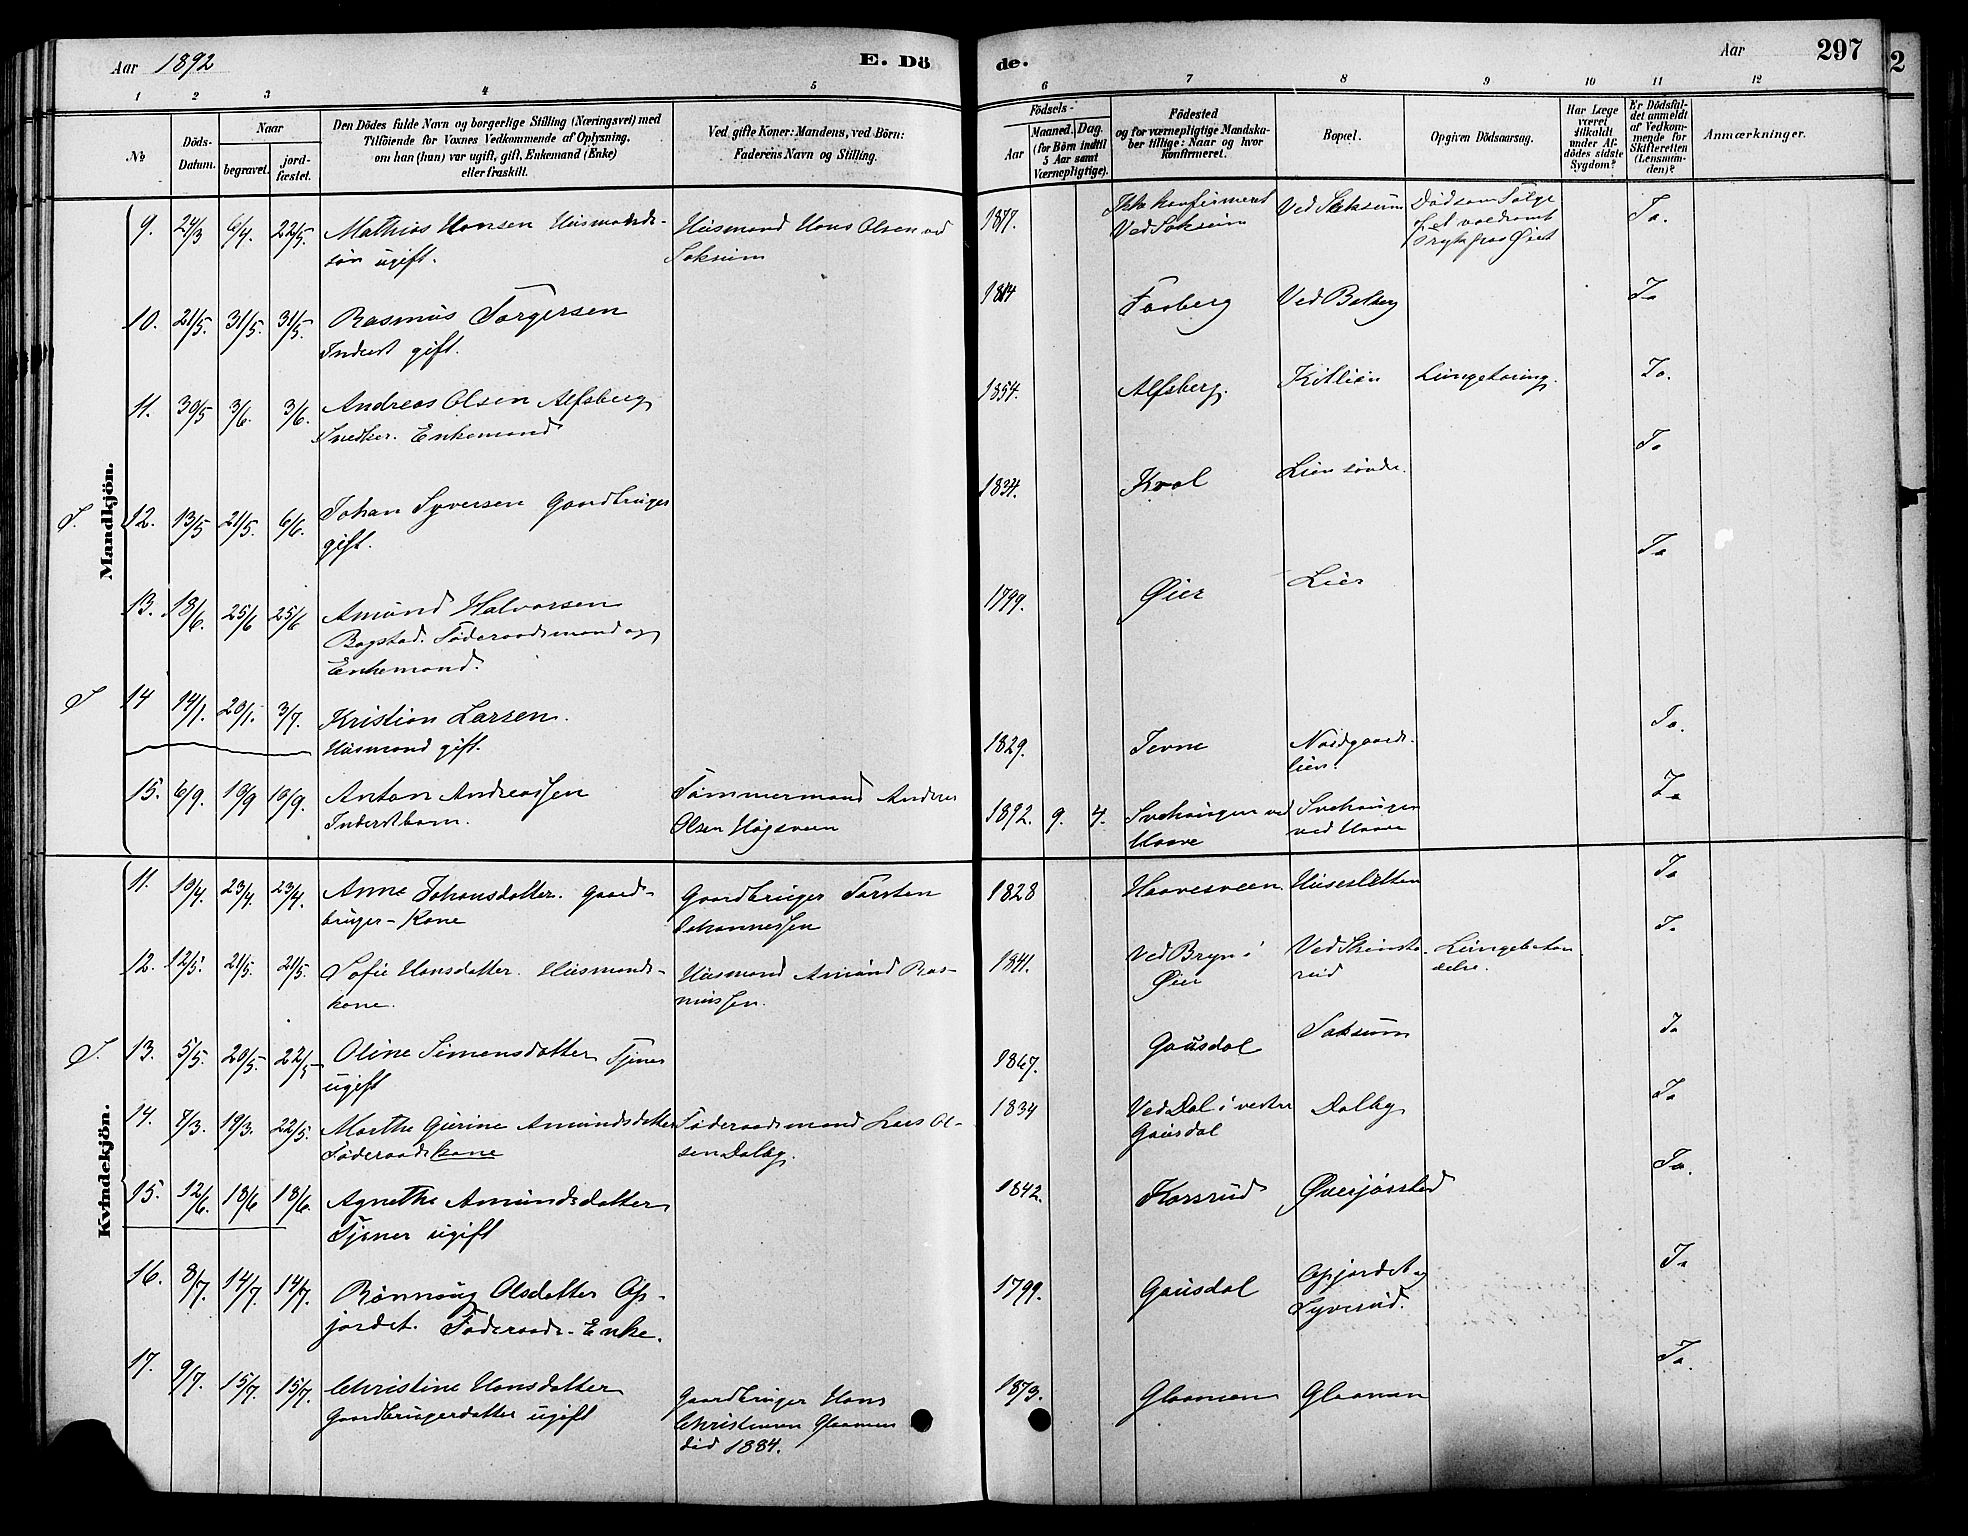 Aar 1892
E. Dö
de.
Aar
297
2
1 2 3 4 5 6 7 8 9 10 11 12
No
Döds-
Datum.
Naar
begravet.
jord-
fæstet.
Den Dödes fulde Navn og borgerlige Stilling (Næringsvei) med
Tilföiende for Voxnes Vedkommende af Oplysning,
om han (hun) var ugift, gift, Enkemand (Enke)
eller fraskilt.
Ved gifte Koner: Mandens, ved Börn:
Faderens Navn og Stilling.
Födsels-
Aar
Maaned. Dag.
(for Börn indtil
5 Aar samt
Værnepligtige).
Födested
og for værnepligtige Mandska-
ber tillige: Naar og hvor
konfirmeret.
Bopæl.
Opgiven Dödsaarsag.
Har Læge
været
tilkaldt
under Af-
dödes sidste
Sygdom?
Er Dödsfal-
det anmeldt
af Vedkom-
mende for
Skifteretten
(Lensman-
den)?
Anmærkninger.
Mandkjön.
9. 24/3 6/4. 22/5. Mathias Hansen Husmands-
sön ugift.
Husmand Hans Olsen ved
Soksum
1877.
Ikke konfirmeret
Ved Soksum
Ved Soksum
Död som Fölge
af et voldsomt
Tryk paa Öiet
Ja.
10. 21/5. 31/5. 31/5. Rasmus Torgersen
Inderst gift.
1814 Faaberg Ved Balberg Ja
11. 30/5 3/6. 3/6. Andreas Olsen Alfsberg
Snedker. Enkemand
1854. Alfsberg. Kitlien Lungetæring. Ja.
S. 12. 13/5 21/5. 6/6. Johan Syversen Gaardbruger
gift.
1834. Kval Lien söndre. Ja
13. 18/6. 25/6 25/6 Amund Halvorsen
Bagstad. Föderaadsmand og
Enkemand.
1799. Öier Lier Ja
S 14 14/1. 20/1. 3/7. Kristian Larsen.
Husmand gift.
1829. Jevne Nordgaards-
lien. Ja.
15. 6/9. 10/9 10/9. Anton Andreassen
Inderstbarn.
Tömmermand Andreas
Olsen Högsveen
1892. 9. 4. Svehaugen ved
Haave
Svehaugen
ved Haave
Ja
Kvindekjön.
11. 10/4. 23/4. 23/4. Anne Johansdatter. Gaard-
bruger-Kone
Gaardbruger Torsten
Johannessen
1828 Haavesveen Huseslætten Ja
12. 12/5. 21/5. 21/5. Sofie Hansdatter. Husmands-
kone.
Husmand Amund Ras-
mussen.
1841. Ved Bryn i
Öier
Ved Skinsta-
rud
Lungebetæn
delse.
Ja.
S. 13. 5/5. 20/5. 22/5 Oline Simensdatter Tjener
ugift
1867. Gausdal Saksum Ja
14. 7/3. 19/3. 22/5. Marthe Gurine Amundsdatter
Föderaadskone
Föderaadsmand Lars Ol-
sen Dalby.
1834 Ved Dal i vestre
Gausdal
Dalby Ja
15. 12/6. 18/6 18/6. Agnethe Amundsdatter
Tjener ugift
1842. Korsrud Överjörsted Ja.
16. 8/7. 14/7 14/7. Rönnaug Olsdatter Op-
jordet. Föderaads-Enke.
1799. Gausdal Opjordet og
Syverud. Ja
17. 9/7. 15/7. 15/7. Christine Hansdatter
Gaardbrugerdatter ugift
Gaardbruger Hans
Christiansen Glaamen
död 1884.
1873. Glaamen Glaamen Ja.